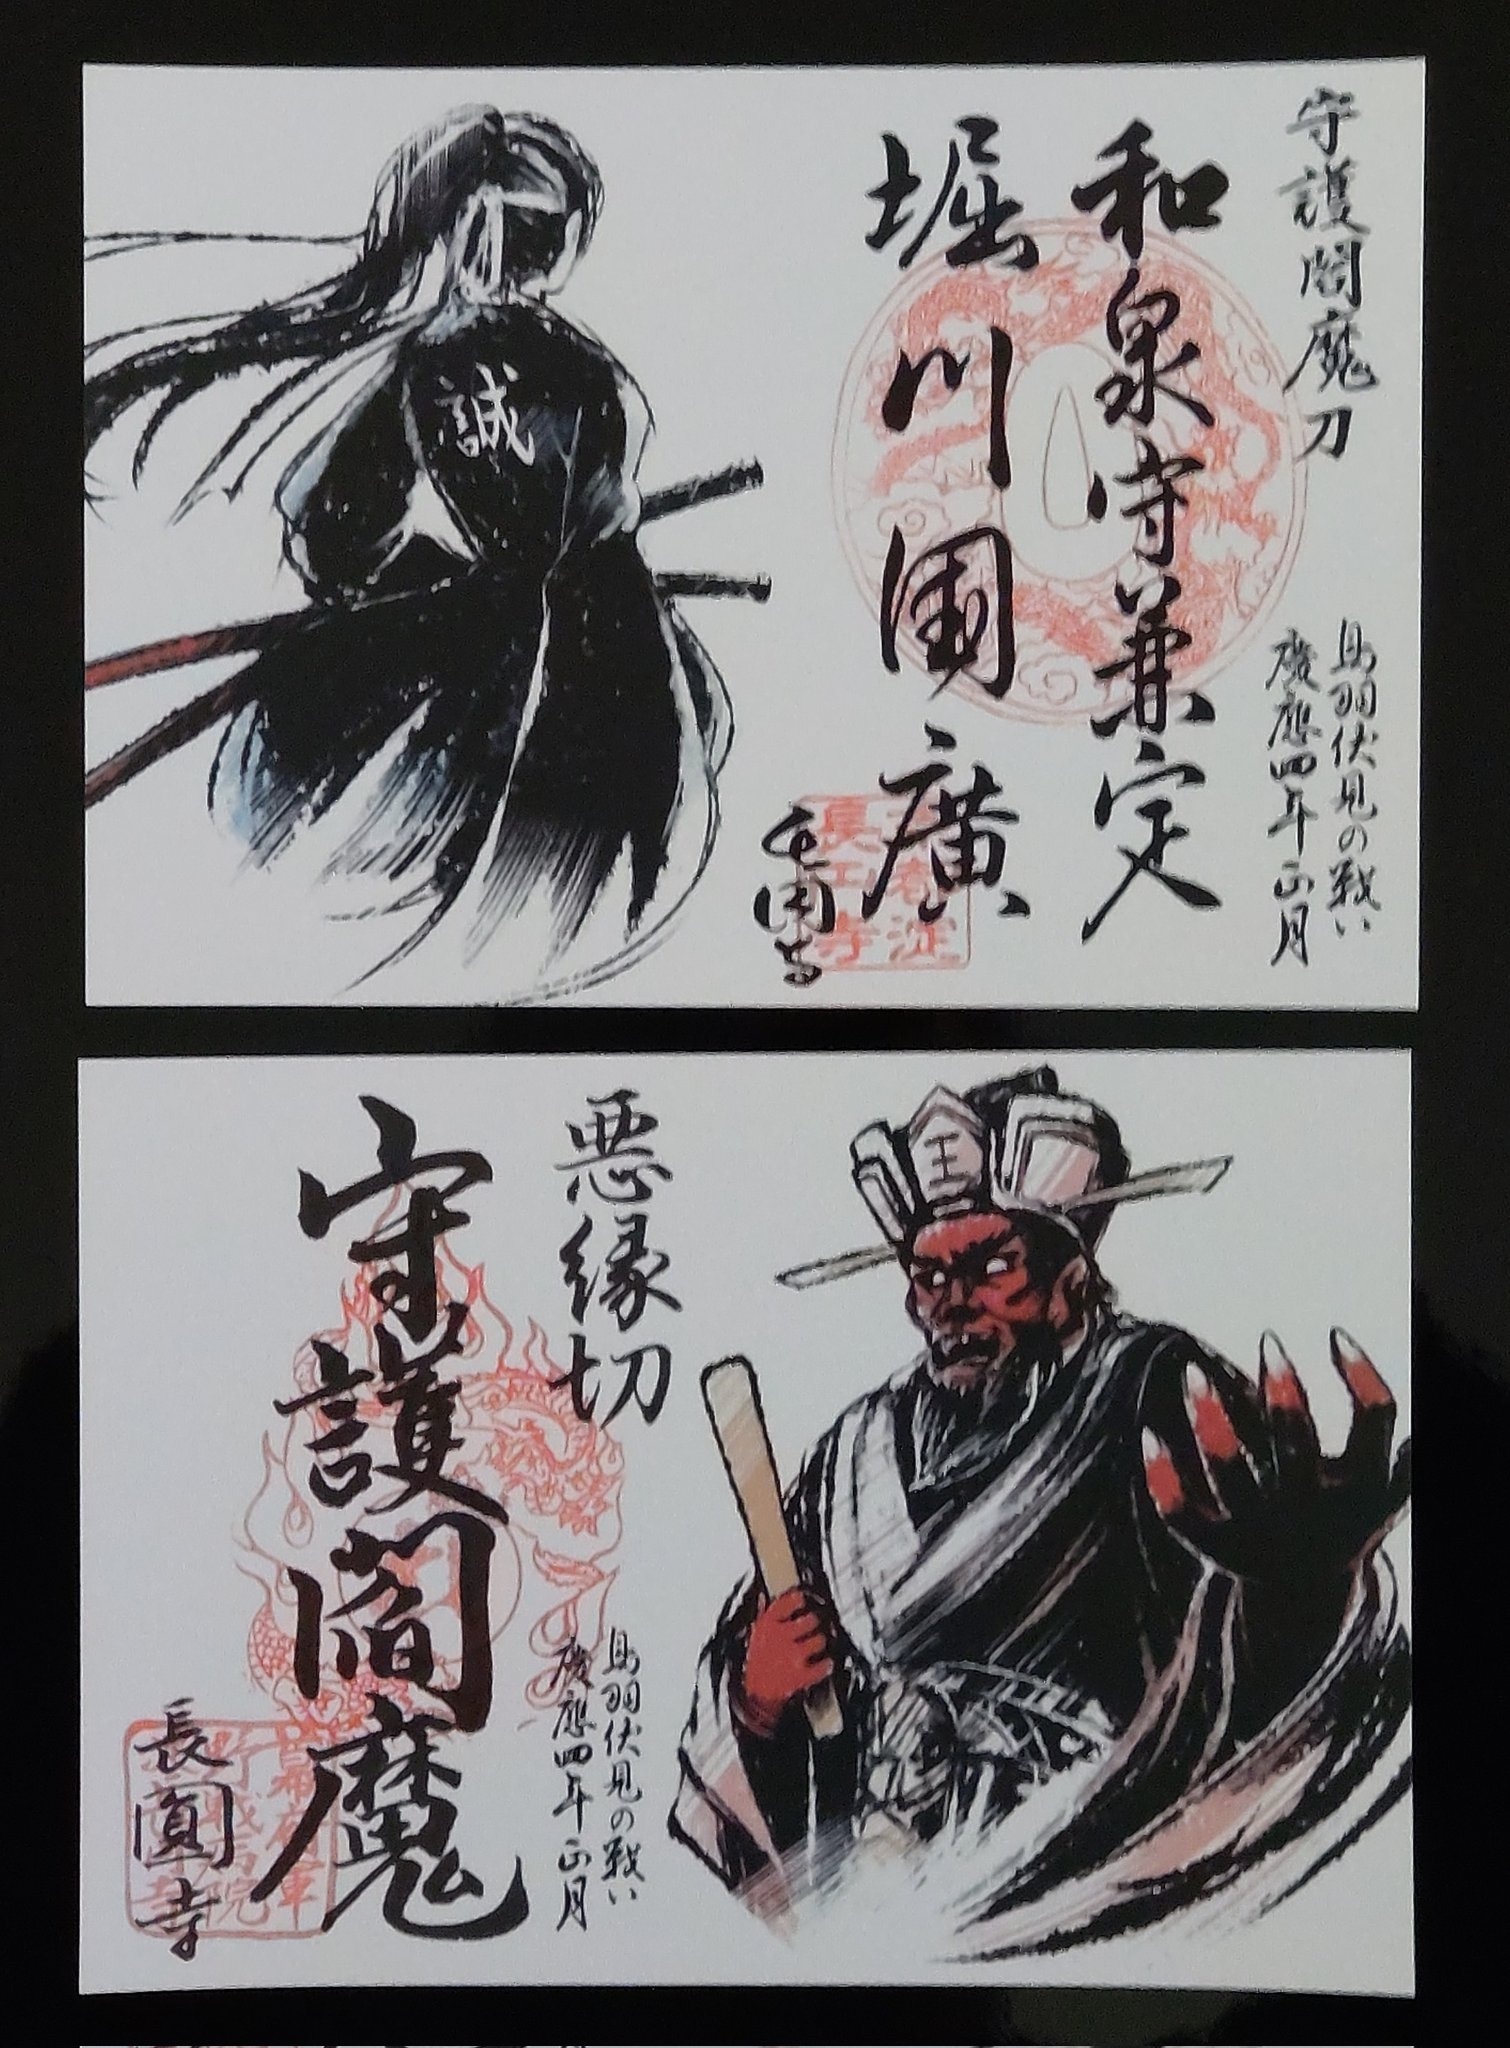 守護閻魔刀
鳥羽伏見の戦い
慶應四年正月
和泉守兼定
堀川国廣
長圓寺
誠
王
悪縁切
鳥羽伏見の戦い
慶應四年正月
守護閻魔
長圓寺